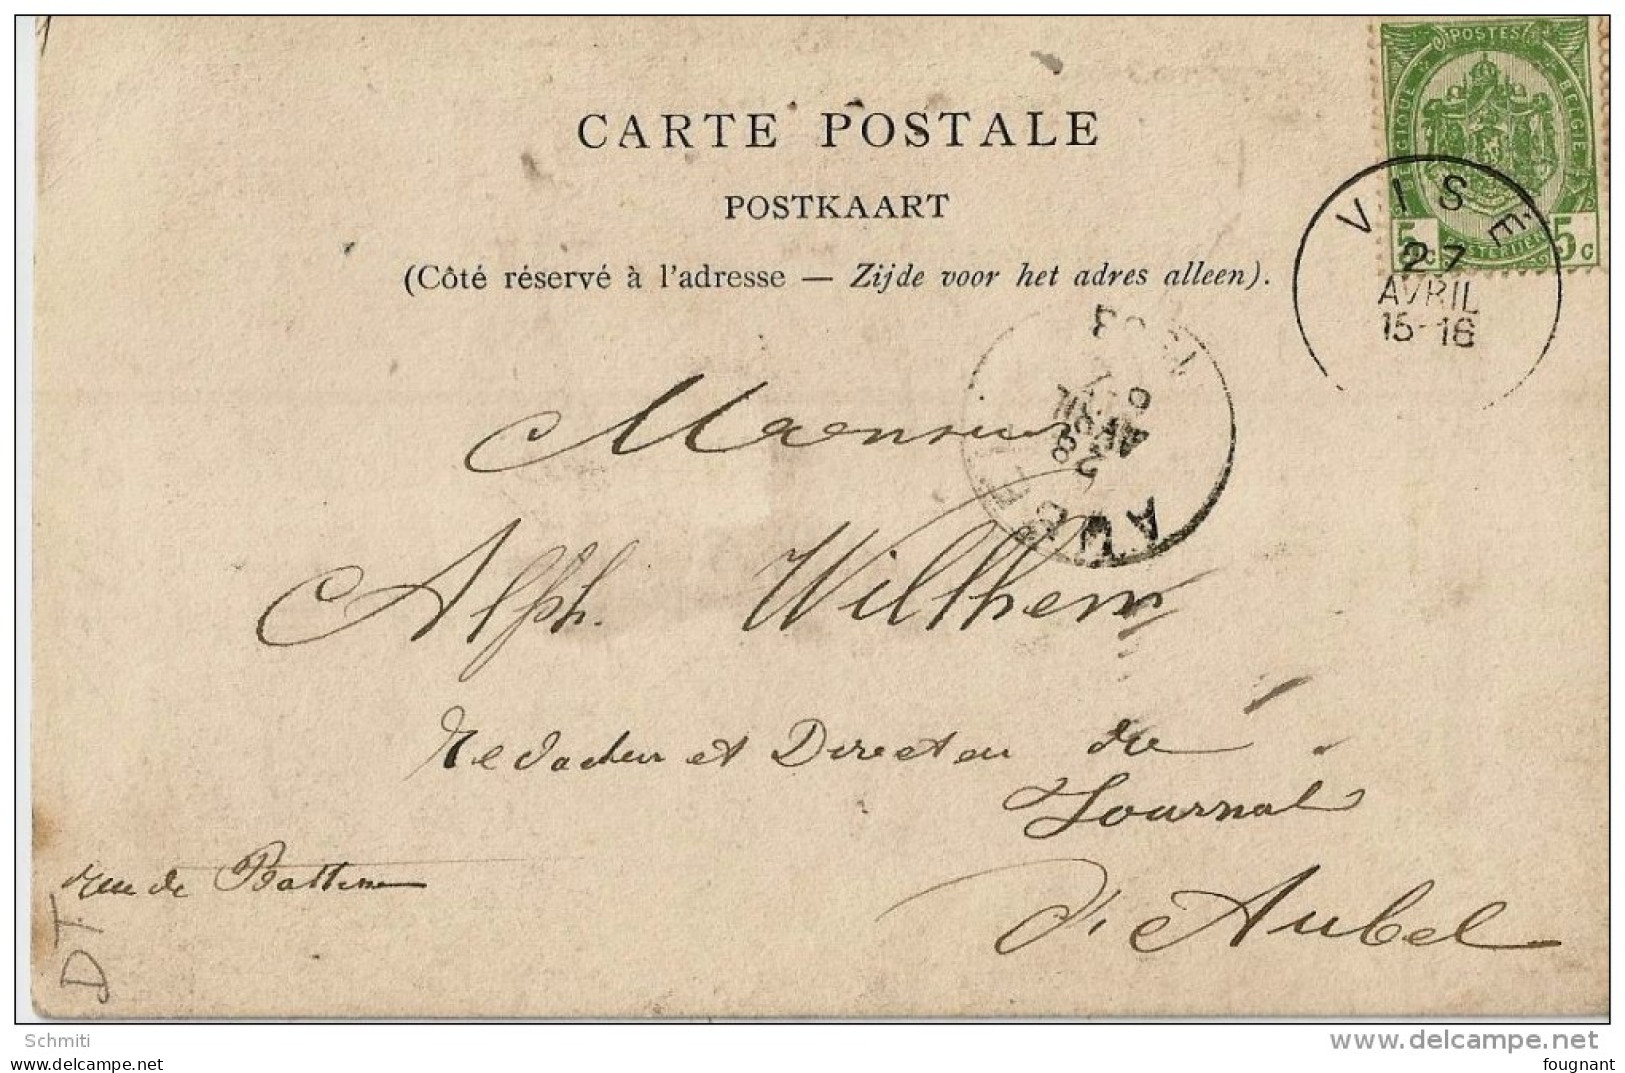 CARTE POSTALE
POSTKAART
(Côté réservé à l'adresse — Zijde voor het adres alleen).
POSTES
BELGIQUE BELGIE
5c 5c
VISÉ
27
AVRIL
15-16
28
AVRIL
Monsieur
Alph. Wilthem
Redacteur et Directeur du
Journal
d'Aubel
rue de Battice
DT.
Schmiti
www.delcampe.net
fougnant